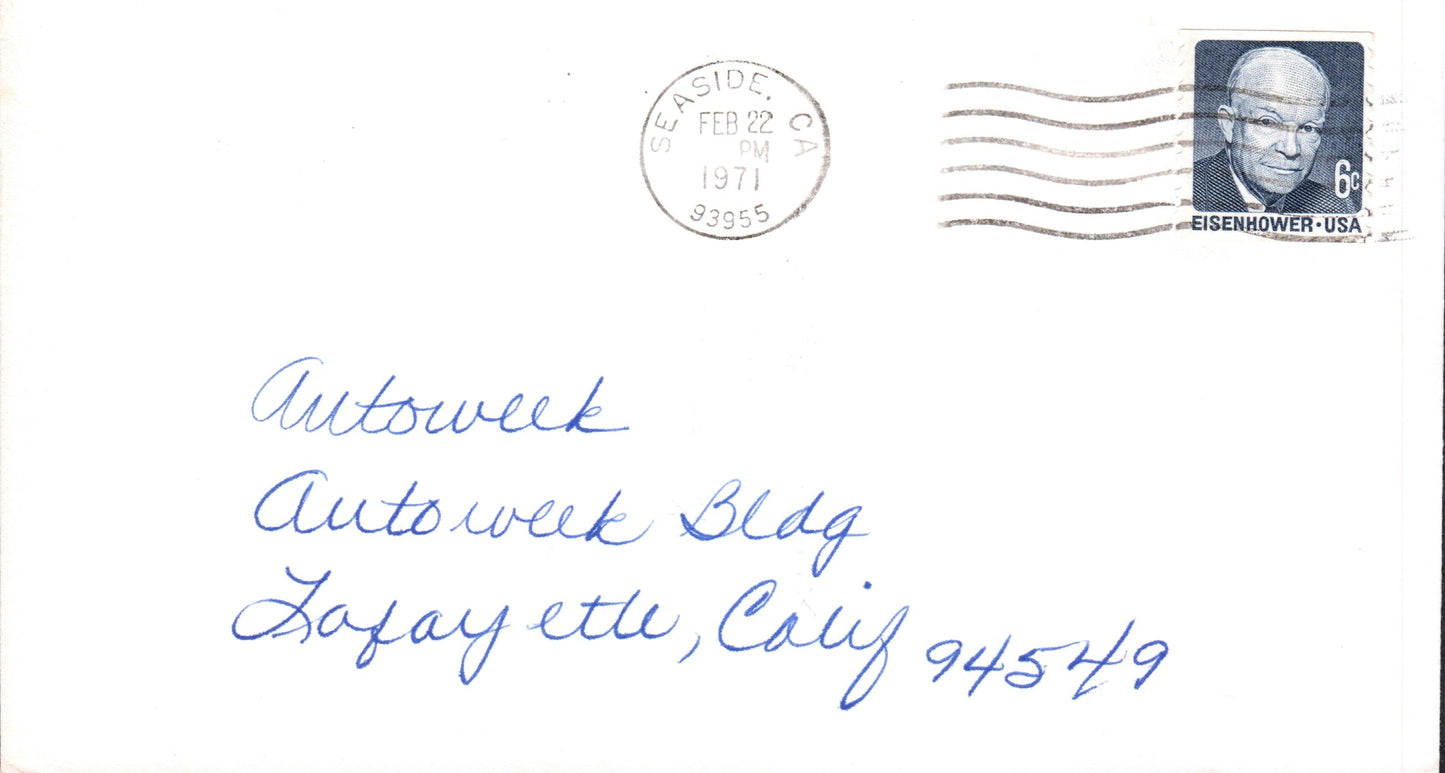 SEASIDE, CA
FEB 22
PM
1971
93955
6c
EISENHOWER·USA
Autoweek
Autoweek Bldg
Lafayette, Calif 94549